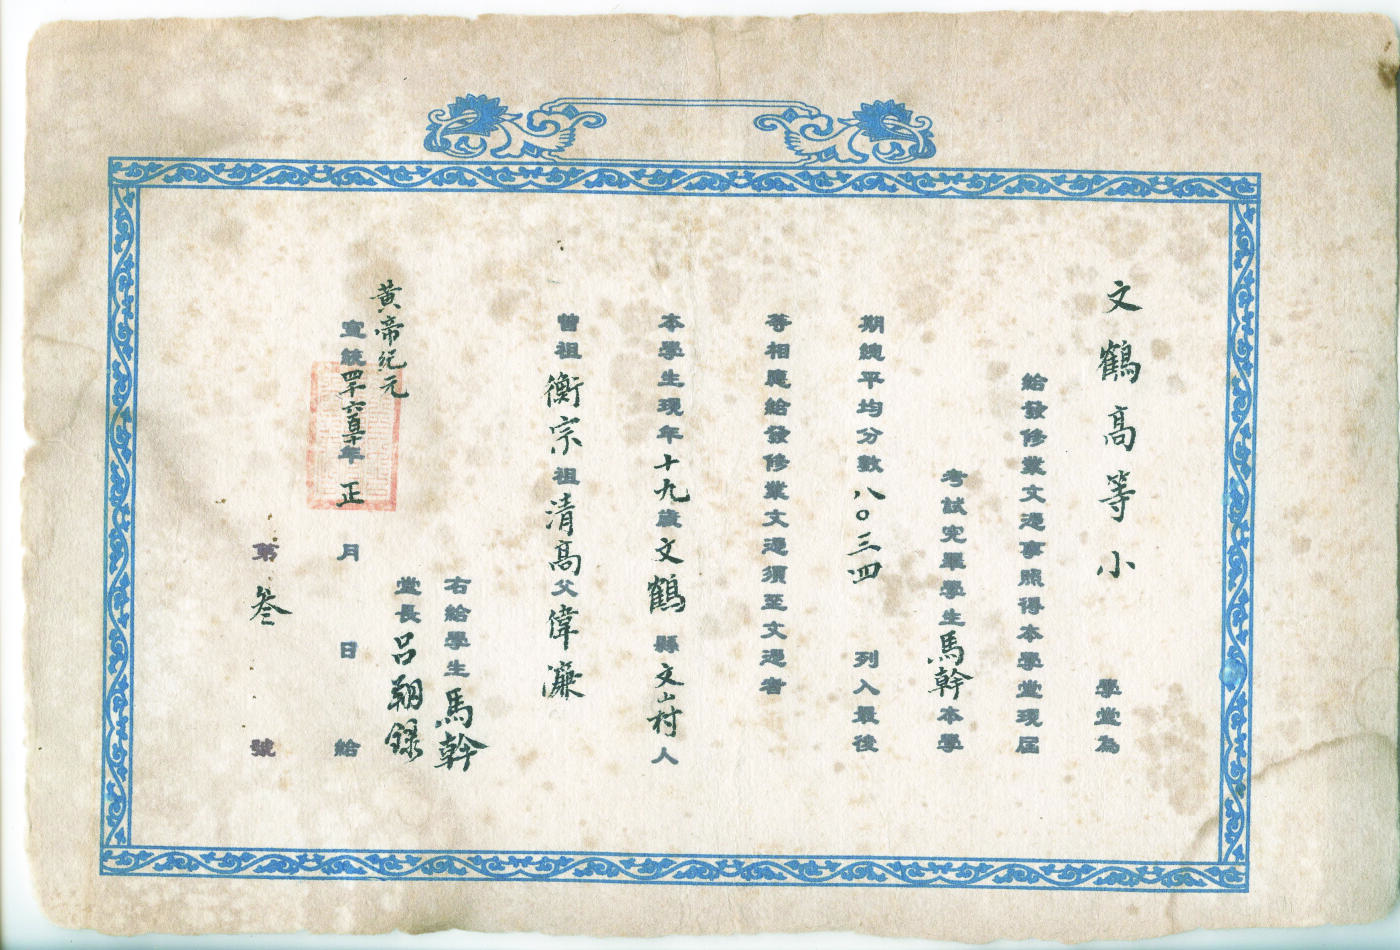 文鶴高等小學堂為
給發修業文憑事照得本學堂現屆
考試完畢學生馬幹本學
期總平均分數八〇三四列入最後
等相應給發修業文憑須至文憑者
本學生現年十九歲文鶴縣文山村人
曾祖衡宗祖清高父偉濂
右給學生馬幹
堂長呂朝錄
黃帝紀元
宣統四千六百年正月日給
第叁號